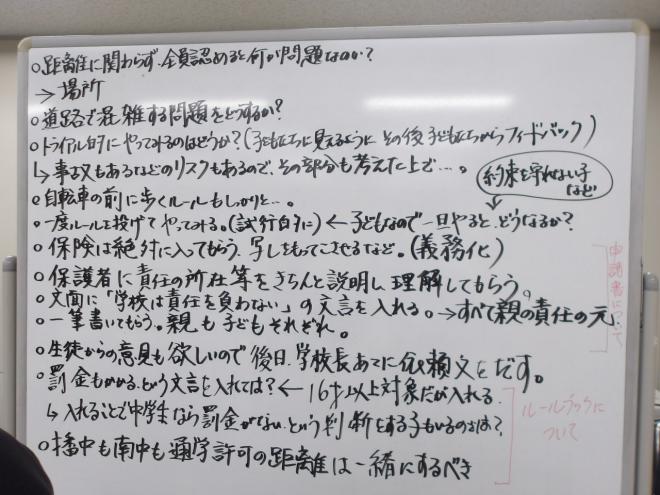 ○距離に関わらず、全員認めると何が問題なのか？
→ 場所
○道路で混雑する問題をどうするか？
○トライアル的にやってみるのはどうか？（子どもたちに見えるように その後子どもたちからフィードバック）
↳ 事故もあるなどのリスクもあるので、その部分も考えた上で…。
約束を守れない子など
○自転車の前に歩くルールもしっかりと…。
○一度ルールを投げてやってみる。（試行的に）← 子どもなので一旦やると、どうなるか？
○保険は絶対に入ってもらう。写しをもってこさせるなど。（義務化）
○保護者に責任の所在等をきちんと説明し理解してもらう。
○文面に「学校は責任を負わない」の文言を入れる。→すべて親の責任の元
○一筆書いてもらう。親も子どもそれぞれ。
申請書について
○生徒からの意見も欲しいので後日、学校長あてに依頼文をだす。
○罰金もかかる、という文言を入れては？← 16才以上対象だが入れる。
↳ 入れることで中学生なら罰金がでない、という判断をする子もいるのでは？
○播中も南中も通学許可の距離は一緒にするべき
ルールブックについて